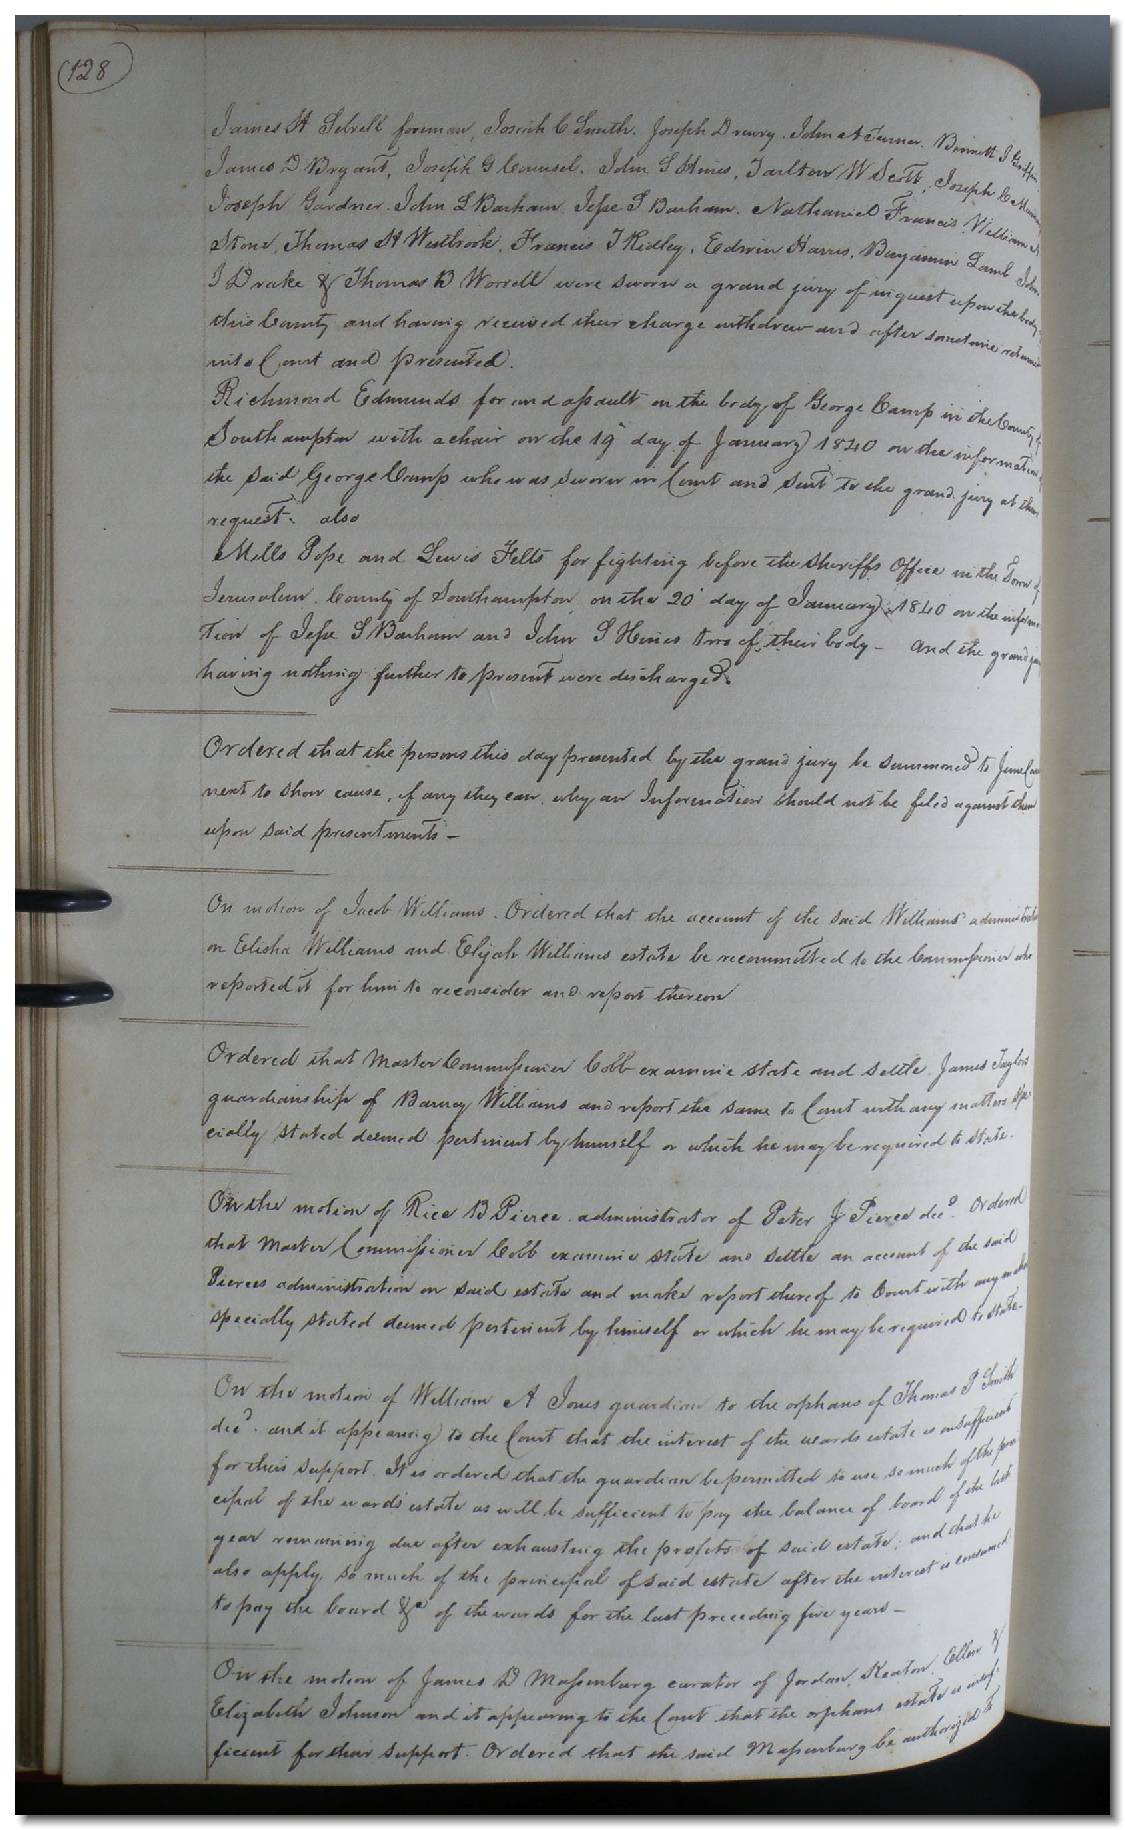 128
James H Sebrell foreman, Josiah C Smith. Joseph Drewry. John A Turner. Bennett J Griffin
James D Bryant, Joseph G Counsel. John S Hines, Tarlton W Scott, Joseph C
Joseph Gardner. John L Barham, Jesse S Barham. Nathaniel Francis, William A
Stone, Thomas H Westbrook, Francis T Ridley, Edwin Harris, Benjamin Lamb John
I Drake & Thomas B Worrell were sworn a grand jury of inquest upon the body
this County and having received their charge withdrew and after sometime returned
into Court and presented.
Richmond Edmunds for and assault on the body of George Camp in the County of
Southampton with a chair on the 19 day of January 1840 on the information of
the said George Camp who was sworn in Court and sent to the grand jury at their
request. also
Mills Pope and Lewis Felts for fighting before the Sheriffs Office in the Town of
Jerusalem, County of Southampton, on the 20 day of January 1840 on the informa
tion of Jesse S Barham and John S Hines two of their body - And the grand jury
having nothing further to present were discharged.
Ordered that the persons this day presented by the grand jury be summoned to June Court
next to show cause, if any they can, why an Information should not be filed against them
upon said presentments -
On motion of Jacob Williams. Ordered that the account of the said Williams' administration
on Elisha Williams and Elijah Williams estate be recommitted to the Commissioner who
reported it for him to reconsider and report thereon
Ordered that Master Commissioner Cobb examine state and settle James Taylors
guardianship of Barney Williams and report the same to Court with any matters spe
cially stated deemed pertinent by himself or which he may be required to state.
On the motion of Rice B Pierce administrator of Peter J Pierce decd. Ordered
that Master Commissioner Cobb examine state and settle an account of the said
Pierces administration on said estate and make report thereof to Court with any matters
specially stated deemed pertinent by himself or which he may be required to state -
On the motion of William A Jones guardian to the orphans of Thomas P Smith
decd. and it appearing to the Court that the interest of the wards estate is insufficient
for their support. It is ordered that the guardian be permitted to use so much of the prin
cipal of the wards estate as will be sufficient to pay the balance of board of the last
year remaining due after exhausting the profits of said estate; and that he
also apply so much of the principal of said estate after the interest is consumed
to pay the board &c of the wards for the last preceding five years -
On the motion of James D Massenburg curator of Jordan, Keaton, Ellen &
Elizabeth Johnson and it appearing to the Court that the orphans estate is insuf
ficient for their support. Ordered that the said Massenburg be authorized to